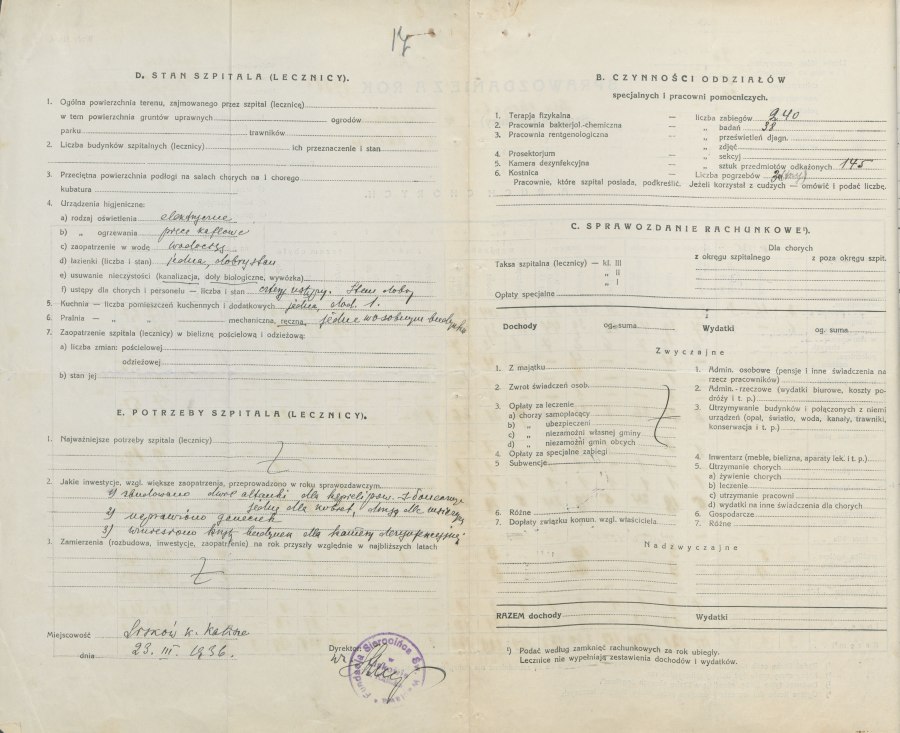 D. STAN SZPITALA (LECZNICY).
1. Ogólna powierzchnia terenu, zajmowanego przez szpital (lecznicę)
w tem powierzchnia gruntów uprawnych ogrodów
parku trawników
2. Liczba budynków szpitalnych (lecznicy) ich przeznaczenie i stan
3. Przeciętna powierzchnia podłogi na salach chorych na 1 chorego
kubatura
4. Urządzenia higjeniczne:
a) rodzaj oświetlenia elektryczne
b) „ ogrzewania piece kaflowe
c) zaopatrzenie w wodę wodociąg
d) łazienki (liczba i stan) jedna, dobry stan
e) usuwanie nieczystości (kanalizacja, doły biologiczne, wywózka)
f) ustępy dla chorych i personelu — liczba i stan cztery ustępy. Stan dobry
5. Kuchnia — liczba pomieszczeń kuchennych i dodatkowych jedna, dod. 1.
6. Pralnia — „ „ mechaniczna, ręczna, jedna w osobnym budynku
7. Zaopatrzenie szpitala (lecznicy) w bieliznę pościelową i odzieżową:
a) liczba zmian: pościelowej
odzieżowej
b) stan jej
E. POTRZEBY SZPITALA (LECZNICY).
1. Najważniejsze potrzeby szpitala (lecznicy)
2. Jakie inwestycje, wzgl. większe zaopatrzenia, przeprowadzono w roku sprawozdawczym
1) zbudowano dwie altanki dla
jedną dla kobiet, drugą dla mężczyzn
2) naprawiono ganeczek
3) wniesiono budynek dla kamery dezynfekcyjnej
3. Zamierzenia (rozbudowa, inwestycje, zaopatrzenie) na rok przyszły względnie w najbliższych latach
Miejscowość Lisków k. Kalisza
dnia 23. III. 1936.
Dyrektor:
Fundacja Sierocińca Św. Wacława
B. CZYNNOŚCI ODDZIAŁÓW
specjalnych i pracowni pomocniczych.
1. Terapja fizykalna — liczba zabiegów 240
2. Pracownia bakterjol.-chemiczna — „ badań 38
3. Pracownia rentgenologiczna — „ prześwietleń djagn.
„ zdjęć
4. Prosektorjum — „ sekcyj
5. Kamera dezynfekcyjna — „ sztuk przedmiotów odkażonych 145
6. Kostnica — Liczba pogrzebów
Pracownie, które szpital posiada, podkreślić. Jeżeli korzystał z cudzych — omówić i podać liczbę.
C. SPRAWOZDANIE RACHUNKOWE¹).
Dla chorych
z okręgu szpitalnego z poza okręgu szpit.
Taksa szpitalna (lecznicy) — kl. III
„ II
„ I
Opłaty specjalne
Dochody og. suma Wydatki og. suma
Zwyczajne
1. Z majątku
2. Zwrot świadczeń osob.
3. Opłaty za leczenie
a) chorzy samopłacący
b) „ ubezpieczeni
c) „ niezamożni własnej gminy
d) „ niezamożni gmin obcych
4. Opłaty za specjalne zabiegi
5. Subwencje
6. Różne
7. Dopłaty związku komun. wzgl. właściciela
1. Admin. osobowe (pensje i inne świadczenia na
rzecz pracowników)
2. Admin.-rzeczowe (wydatki biurowe, koszty po-
dróży i t. p.)
3. Utrzymywanie budynków i połączonych z niemi
urządzeń (opał, światło, woda, kanały, trawniki,
konserwacja i t. p.)
4. Inwentarz (meble, bielizna, aparaty lek. i t. p.)
5. Utrzymanie chorych
a) żywienie chorych
b) leczenie
c) utrzymanie pracowni
d) wydatki na inne świadczenia dla chorych
6. Gospodarcze
7. Różne
Nadzwyczajne
RAZEM dochody Wydatki
¹) Podać według zamknięć rachunkowych za rok ubiegły.
Lecznice nie wypełniają zestawienia dochodów i wydatków.